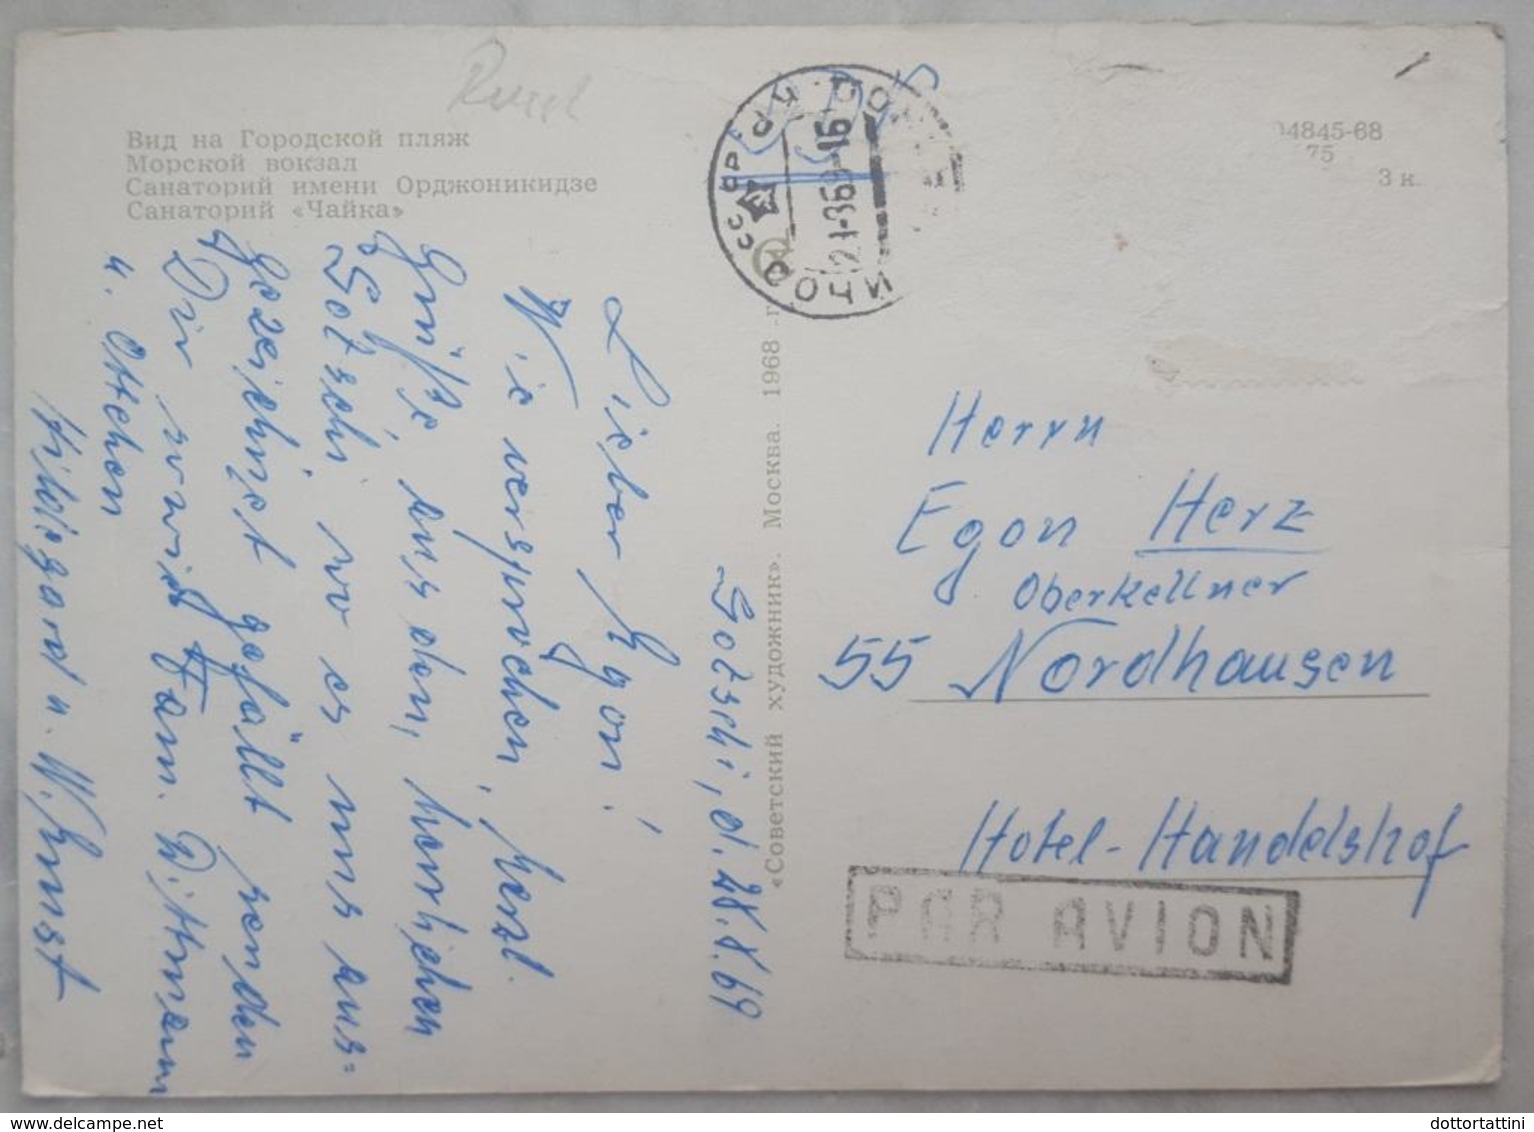 Вид на Городской пляж
Морской вокзал
Санаторий имени Орджоникидзе
Санаторий «Чайка»
04845-68
75
3 к.
СОЧИ
СССР
«Советский художник». Москва. 1968 г.
Sotschi, d. 28.8.69
Lieber Egon!
Wie versprochen, herzl.
Grüße, aus dem, herrlichen
Sotschi wo es uns aus=
gezeichnet gefällt senden
Dir sowie Fam. Dittmann
u. Ottchen
Hildegard u. W. Ernst
Herrn
Egon Herz
Oberkellner
55 Nordhausen
Hotel-Handelshof
PAR AVION
dottortattini